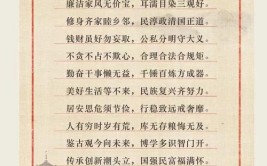 廉洁家风无价宝，耳濡目染三观好。
修身齐家睦乡邻，民淳政清国正道。
钱财虽好勿妄取，公私分明守大义。
不贪不占不欺心，合理合法合规矩。
勤奋干事懒无益，千锤百炼方成器。
美好生活等不来，民族复兴齐努力。
居安思危须节俭，行稳致远戒奢靡。
人有穷时岁有荒，库无存粮悔无及。
鉴古观今向未来，博学多识智门开。
传承创新潮头立，国强民富福满怀。